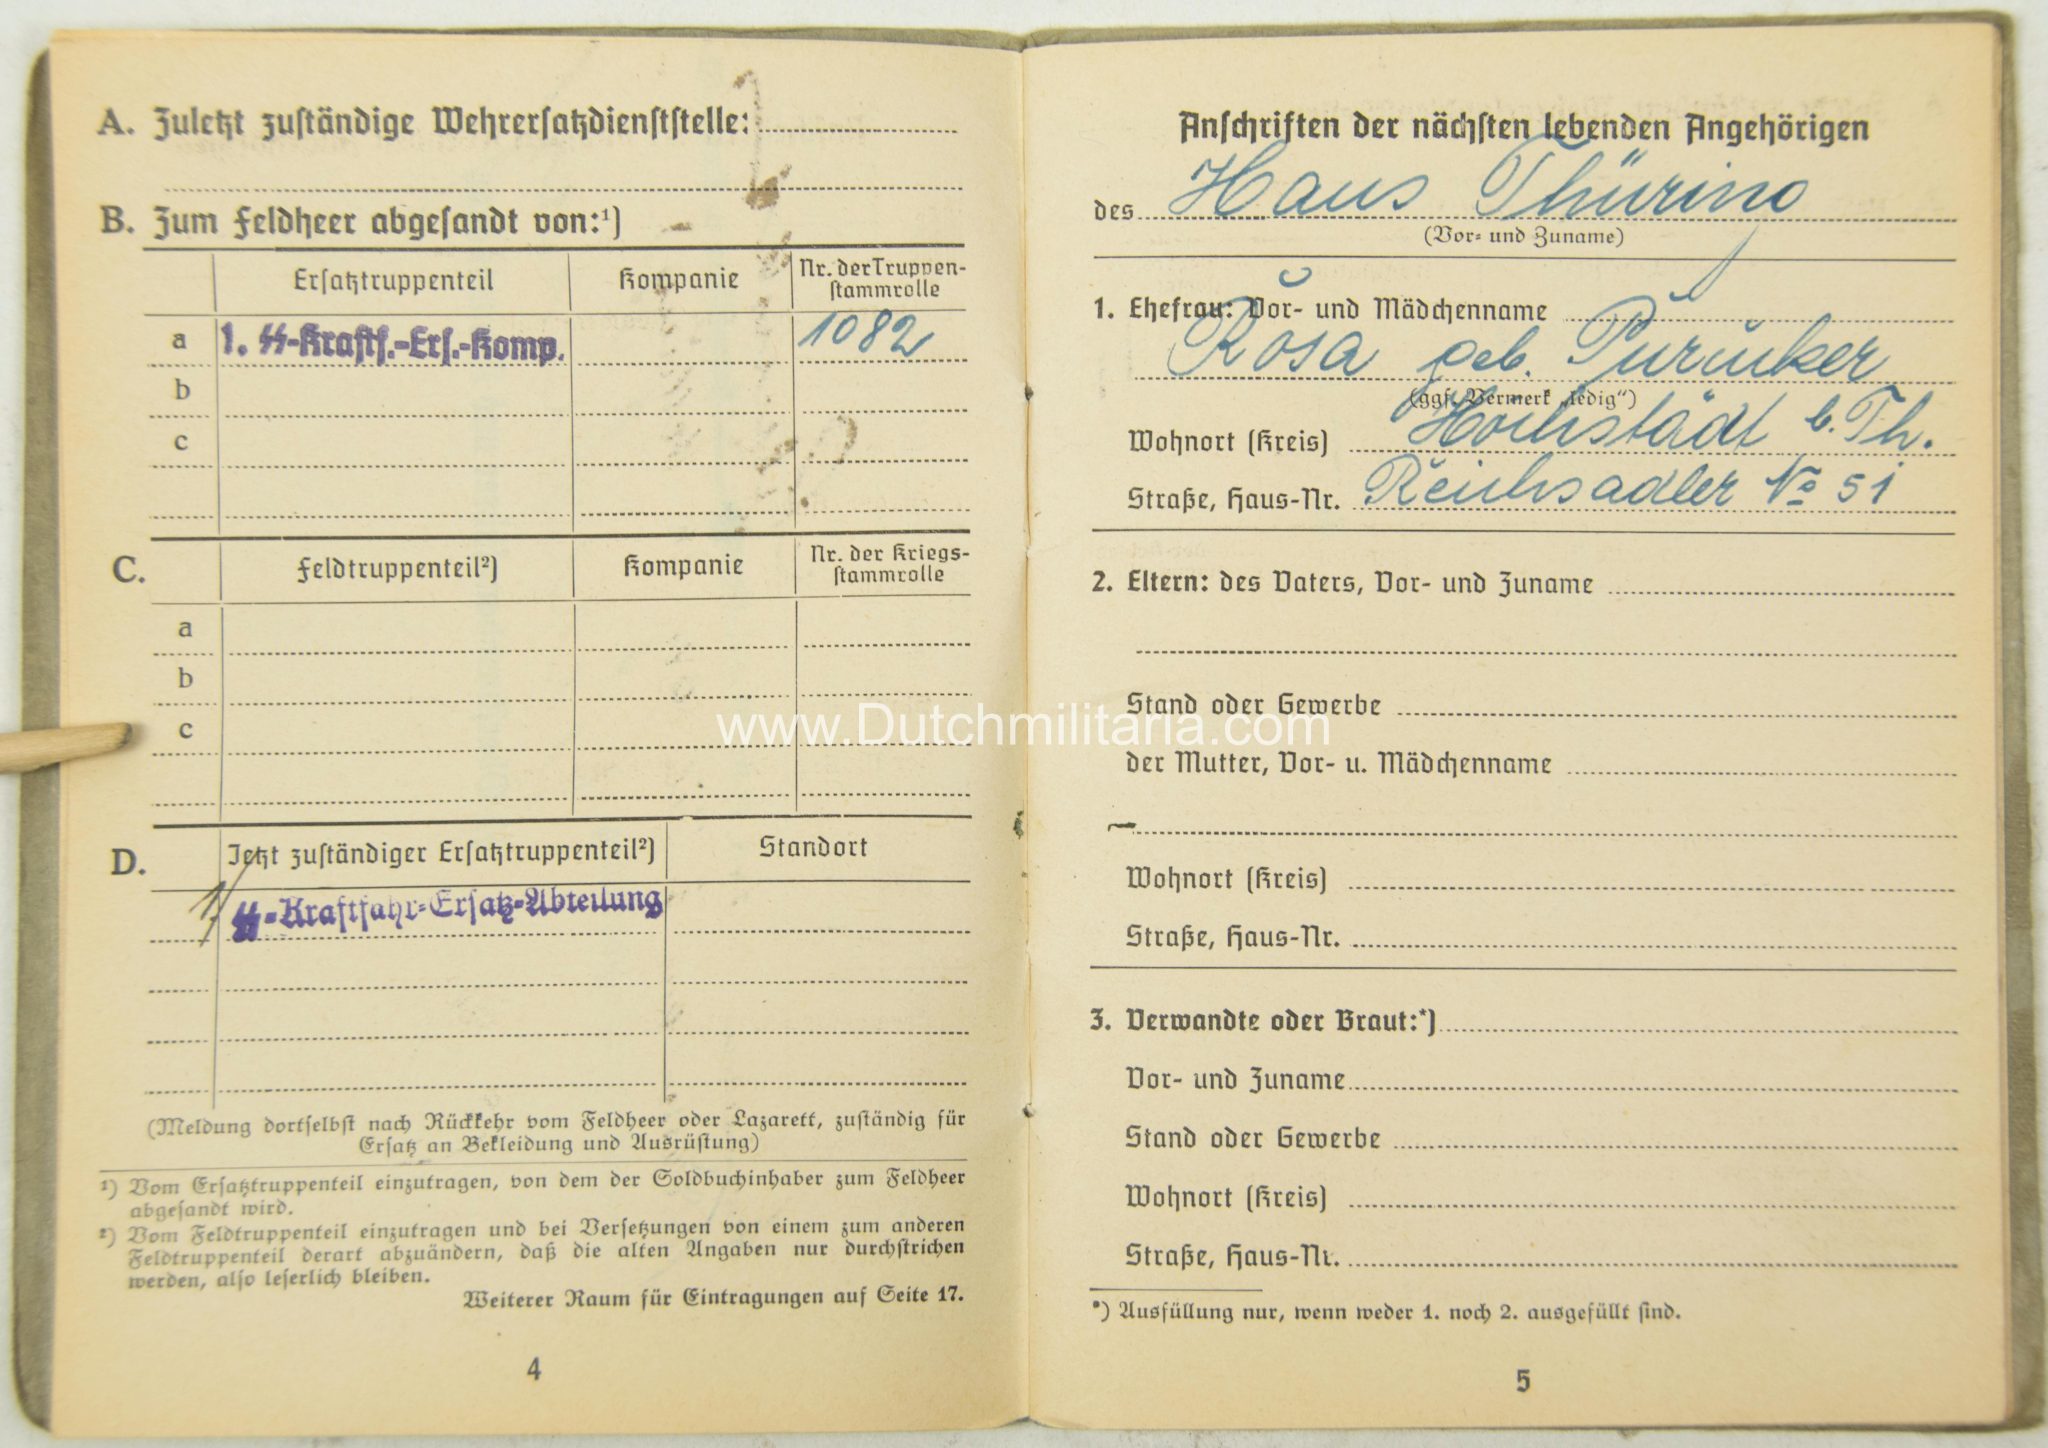 A. Zuletzt zuständige Wehrersatzdienststelle:
B. Zum Feldheer abgesandt von:¹)
Ersatztruppenteil Kompanie Nr. der Truppen-
stammrolle
a 1. SS-Kraftf.-Ers.-Komp. 1082
b
c
C. Feldtruppenteil²) Kompanie Nr. der Kriegs-
stammrolle
a
b
c
D. Jetzt zuständiger Ersatztruppenteil²) Standort
1./ SS-Kraftfahr-Ersatz-Abteilung
(Meldung dortselbst nach Rückkehr vom Feldheer oder Lazarett, zuständig für
Ersatz an Bekleidung und Ausrüstung)
¹) Vom Ersatztruppenteil einzutragen, von dem der Soldbuchinhaber zum Feldheer
abgesandt wird.
²) Vom Feldtruppenteil einzutragen und bei Versetzungen von einem zum anderen
Feldtruppenteil derart abzuändern, daß die alten Angaben nur durchstrichen
werden, also leserlich bleiben.
Weiterer Raum für Eintragungen auf Seite 17.
4
Anschriften der nächsten lebenden Angehörigen
des Hans Thüring
(Vor- und Zuname)
1. Ehefrau: Vor- und Mädchenname
Rosa geb. Purucker
(ggf. Vermerk „ledig“)
Wohnort (Kreis) Hochstädt b. Th.
Straße, Haus-Nr. Reichsadler No 51
2. Eltern: des Vaters, Vor- und Zuname
Stand oder Gewerbe
der Mutter, Vor- u. Mädchenname
Wohnort (Kreis)
Straße, Haus-Nr.
3. Verwandte oder Braut:*)
Vor- und Zuname
Stand oder Gewerbe
Wohnort (Kreis)
Straße, Haus-Nr.
*) Ausfüllung nur, wenn weder 1. noch 2. ausgefüllt sind.
5
www.Dutchmilitaria.com